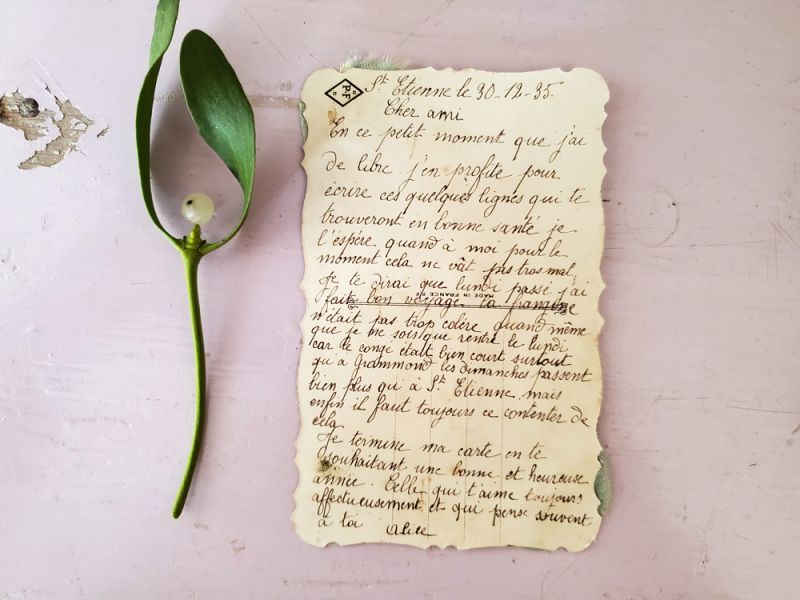 PF
St Etienne le 30-12-35.
Cher ami
En ce petit moment que j'ai
de libre j'en profite pour
écrire ces quelques lignes qui te
trouveront en bonne santé je
l'éspére quand à moi pour le
moment cela ne vât pas tros mal.
Je te dirai que lundi passé j'ai
MADE IN FRANCE
fait bon voyage la frangine
n'était pas trop colère quand même
que je ne sois que rentré le lundi
car le congé était bien court surtout
qu'à Grammond les dimanches passent
bien plus qu'à St Etienne mais
enfin il faut toujours ce contenter de
cela
Je termine ma carte en te
souhaitant une bonne et heureuse
année. Celle qui t'aime toujours
affectueusement et qui pense souvent
à toi Alice